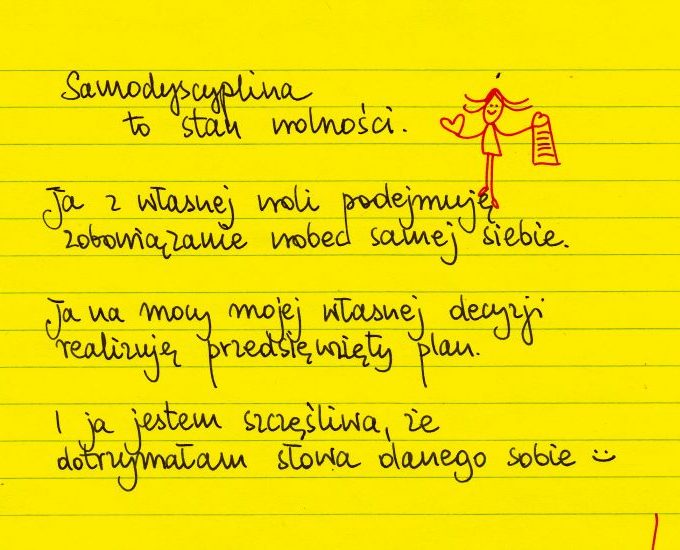 Samodyscyplina
to stan wolności.
Ja z własnej woli podejmuję
zobowiązanie wobec samej siebie.
Ja na mocy mojej własnej decyzji
realizuję przedsięwzięty plan.
I ja jestem szczęśliwa, że
dotrzymałam słowa danego sobie :)